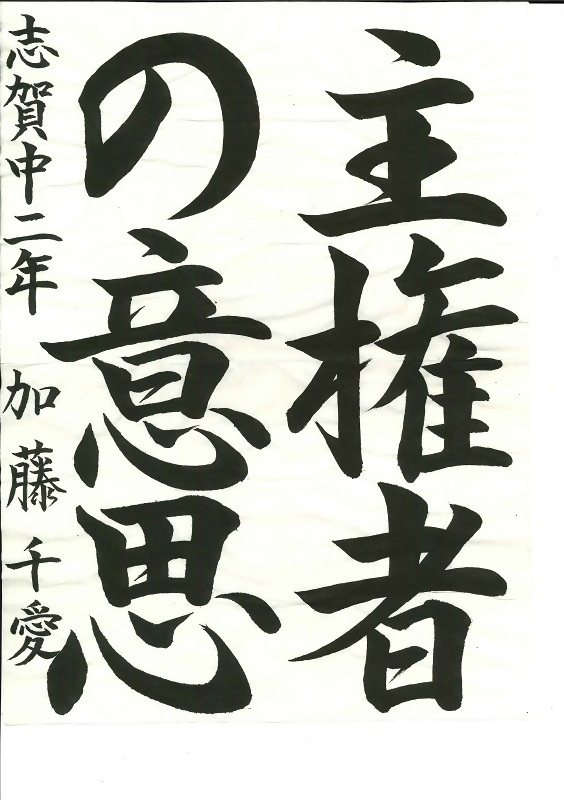 主権者
の意思
志賀中二年 加藤千愛